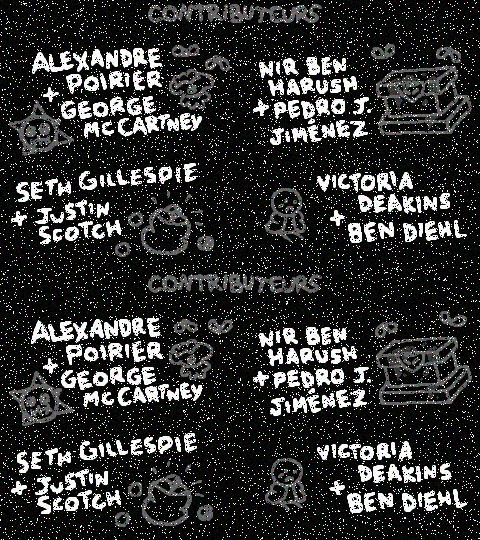 CONTRIBUTEURS
ALEXANDRE
POIRIER
+ GEORGE
MCCARTNEY
NIR BEN
HARUSH
+ PEDRO J.
JIMÉNEZ
SETH GILLESPIE
+ JUSTIN
SCOTCH
VICTORIA
DEAKINS
+ BEN DIEHL
CONTRIBUTEURS
ALEXANDRE
POIRIER
+ GEORGE
MCCARTNEY
NIR BEN
HARUSH
+ PEDRO J.
JIMÉNEZ
SETH GILLESPIE
+ JUSTIN
SCOTCH
VICTORIA
DEAKINS
+ BEN DIEHL